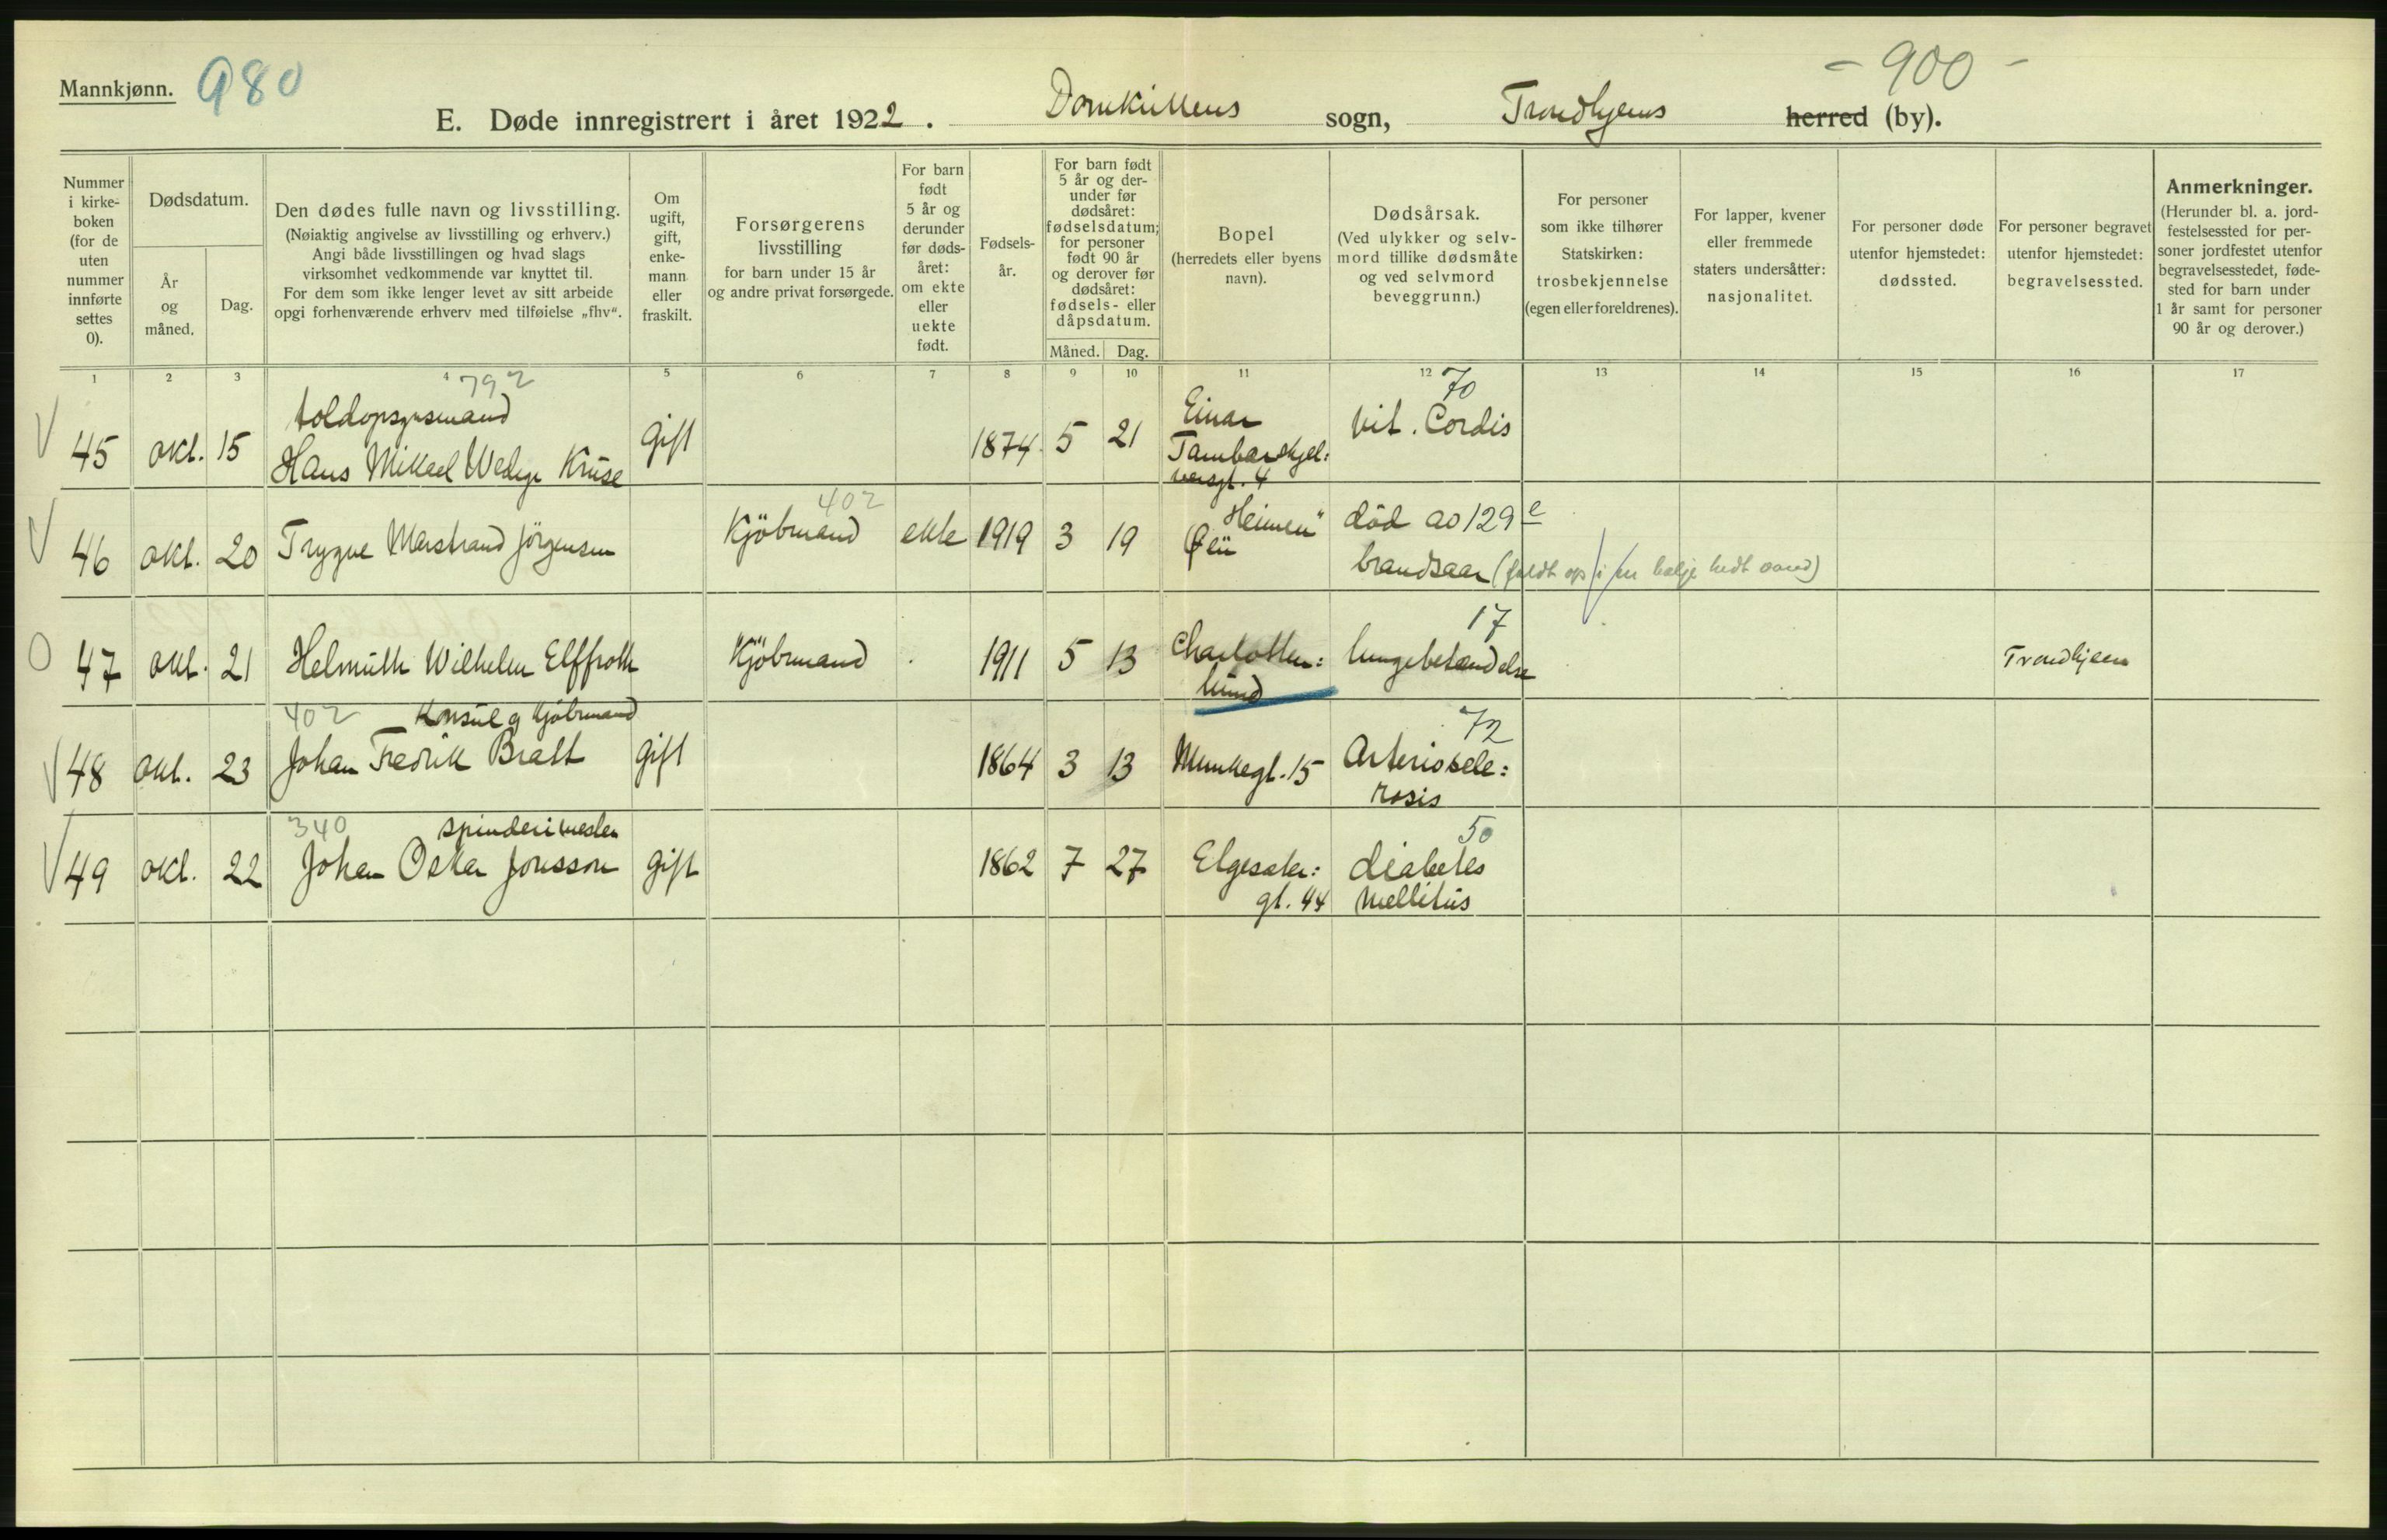 Mannkjønn. 980
- 900 -
E. Døde innregistrert i året 1922. Domkirkens sogn, Trondhjems herred (by).
Nummer i kirke- boken (for de uten nummer innførte settes 0).
Dødsdatum.
År og måned.
Dag.
Den dødes fulle navn og livsstilling.
(Nøiaktig angivelse av livsstilling og erhverv.)
Angi både livsstillingen og hvad slags
virksomhet vedkommende var knyttet til.
For dem som ikke lenger levet av sitt arbeide
opgi forhenværende erhverv med tilføielse „fhv“.
Om ugift, gift, enke- mann eller fraskilt.
Forsørgerens livsstilling
for barn under 15 år
og andre privat forsørgede.
For barn født 5 år og derunder før døds- året: om ekte eller uekte født.
Fødsels- år.
For barn født 5 år og der- under før dødsåret: fødselsdatum; for personer født 90 år og derover før dødsåret: fødsels- eller dåpsdatum.
Måned. Dag.
Bopel
(herredets eller byens navn).
Dødsårsak.
(Ved ulykker og selv- mord tillike dødsmåte og ved selvmord beveggrunn.)
For personer som ikke tilhører Statskirken: trosbekjennelse (egen eller foreldrenes).
For lapper, kvener eller fremmede staters undersåtter: nasjonalitet.
For personer døde utenfor hjemstedet: dødssted.
For personer begravet utenfor hjemstedet: begravelsessted.
Anmerkninger.
(Herunder bl. a. jord- festelsessted for per- soner jordfestet utenfor begravelsesstedet, føde- sted for barn under 1 år samt for personer 90 år og derover.)
1 2 3 4 5 6 7 8 9 10 11 12 13 14 15 16 17
792
70
toldopsynsmand
45 okt. 15 Hans Mikael Wedege Kruse gift 1874 5 21 Einar Tambarskjel: versgt. 4 Vit. Cordis
402
46 okt. 20 Trygve Marstrand Jörgensen Kjöbmand ekte 1919 3 19 Heimen" Øen död ao 129 e
brandsaar (faldt op i en balje hedt vand)
17
47 okt. 21 Helmuth Wilhelm Elffroth Kjöbmand . 1911 5 13 Charlotten: lund lungebetændelse Trondhjem
402 Konsul og Kjöbmand
72
48 okt. 23 Johan Fredrik Bratt gift 1864 3 13 Munkegt. 15 Arteriosele: rosis
340 spinderimester
50
49 okt. 22 Johan Oskar Jonsson gift 1862 7 27 Elgesæter: gt. 44 diabetes mellitus